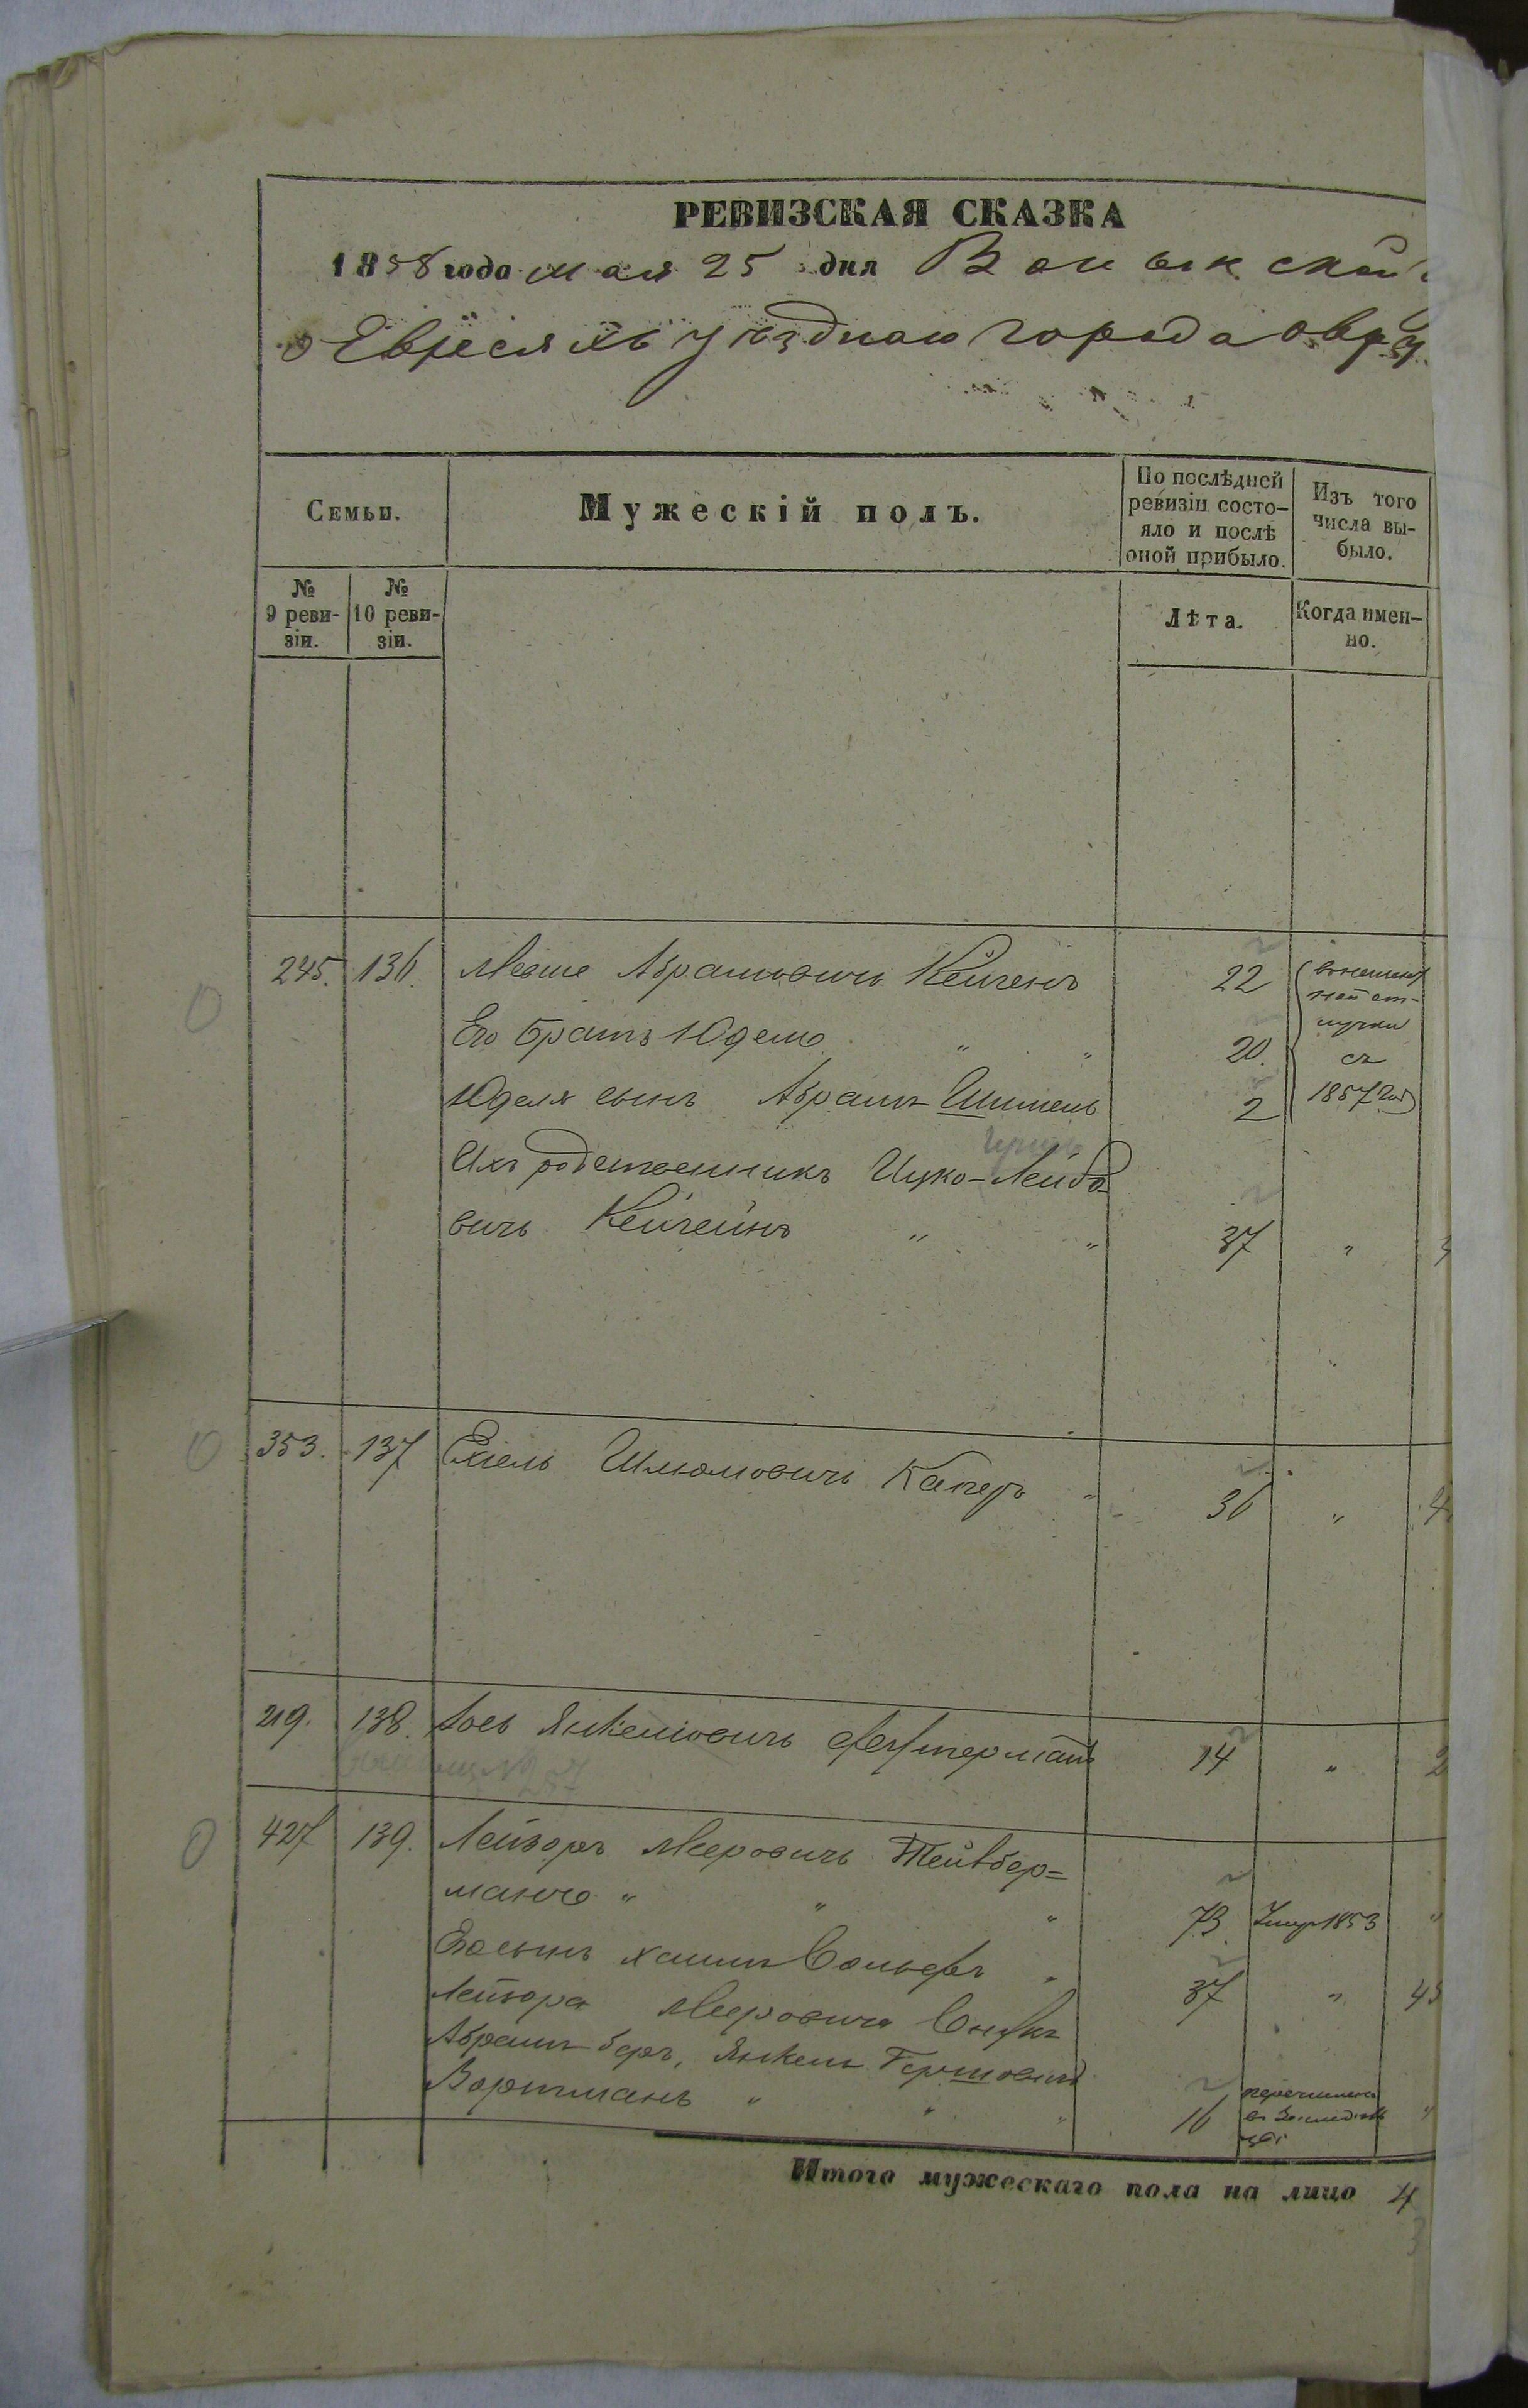 РЕВИЗСКАЯ СКАЗКА
1858 года мая 25 дня Волынской
о Евреяхъ уѣзднаго города Овру
Семьи.
Мужескій полъ.
По послѣдней
ревизіи состо-
яло и послѣ
оной прибыло.
Изъ того
числа вы-
было.
№
9 реви-
зіи.
№
10 реви-
зіи.
Лѣта.
Когда имен-
но.
245. 136. Мовше Абрамовичъ Кейгенъ 22
Его Братъ Юдель " " 20.
съ
Юделя сынъ Абрамъ Шимель 2 1857 год
Ихъ родственникъ Ицко-Лейбо-
вичъ Кейгейнъ " " 37 " 3
353. 137 Ехіель Шлюмовичъ Кагеръ " 36 " 4
219. 138. Іось Янкеліовичъ 14 " 2
427 139. Лейзоръ Мееровичъ Тейвбер=
манъ " " " 73. Умер 1853 "
Его сынъ Хаимъ Вольфъ " 37 " 45
Лейзора Мееровича Внукъ
Абрамъ беръ, Янкель Гершовичъ
Вортманъ " " " 16 перечисленъ "
Итого мужескаго пола на лицо 4